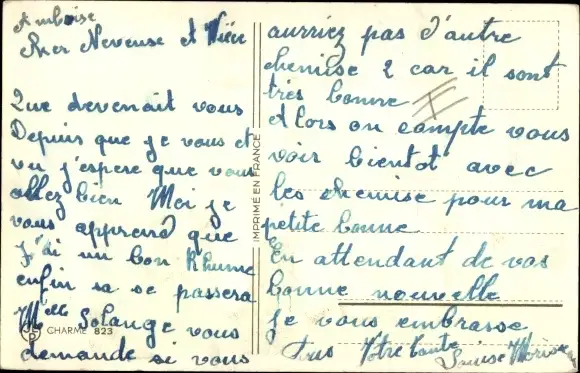 Amboise
Cher Neveuse et Nièce
Que devenait vous
Depuis que je vous et
vu j'espere que vous
allez bien Moi je
vous apprend que
J'ai un bon Rhume
enfin sa se passera
Melle Solange vous
demande si vous
CHARME 823
IMPRIMÉ EN FRANCE
aurriez pas d'autre
chemise 2 car il sont
très bonne
Alors on compte vous
voir bientot avec
les chemise pour ma
petite bonne
En attendant de vos
bonne nouvelle
Je vous embrasse
Votre tante
Louise